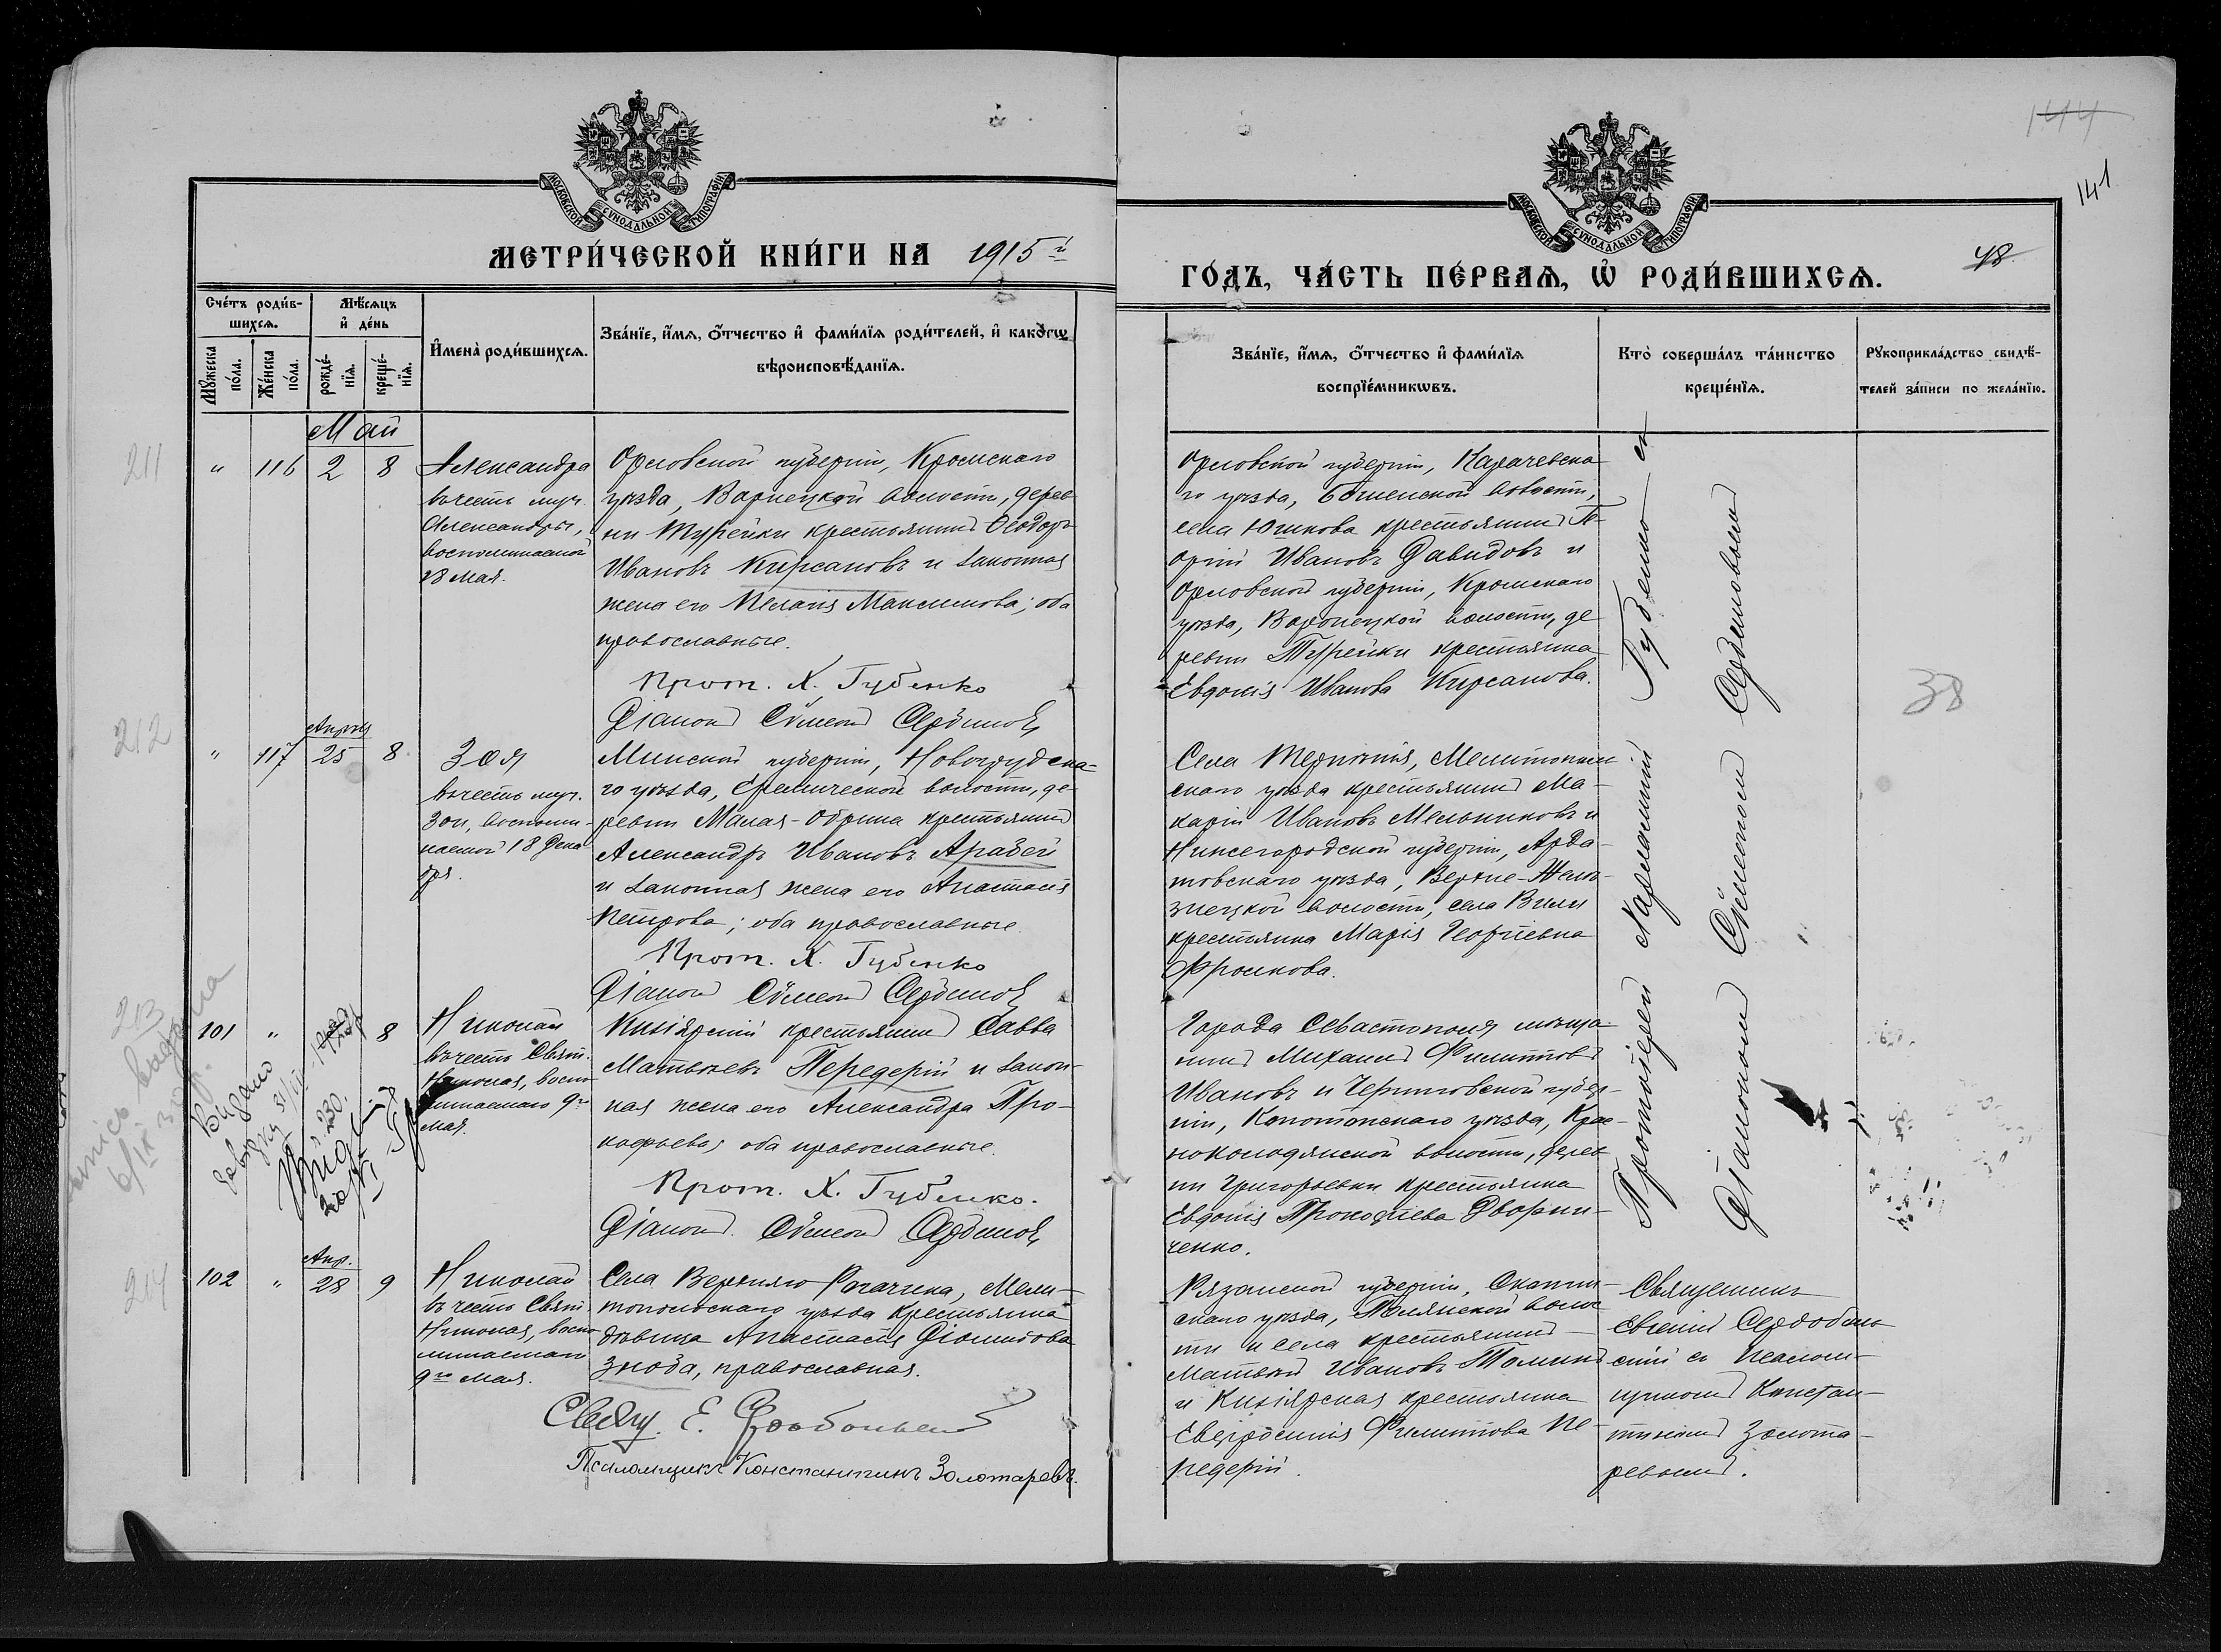 МОСКОВСКОЙ СѴНОДАЛЬНОЙ ТИПОГРАФІИ
МЕТРИ́ЧЕСКОЙ КНИ́ГИ НА 1915 й
Сче́тъ роди́в-
шихсѧ.
Мѣ́сяцъ
и҆ де́нь
Мꙋ́жеска
по́ла.
Же́нска
по́ла.
рожде́-
нїѧ.
креще́-
нїѧ.
И҆мена̀ роди́вшихсѧ.
Зва́нїе, и҆́мѧ, ѻ҆́тчество и҆ фами́лїѧ роди́телей, и҆ како́гѡ
вѣроисповѣ́данїѧ.
Май
211
" 116 2 8
Александра
въ честь муч.
Александры,
воспоминаемой
18 Мая.
Орловской губерніи, Кромскаго
уѣзда, Воронецкой волости, дерев-
ни Турейки крестьянинъ Ѳеодоръ
Ивановъ Кирсановъ и законная
жена его Пелагія Максимова; оба
православные.
Прот. Х. Губенко
Діаконъ Сѵмеонъ Сердимовъ
212
Апрѣля
" 117 25 8
Зоя
въ честь муч.
Зои, воспоми-
наемой 18 Декаб-
бря.
Минской губерніи, Новогрудска-
го уѣзда, волости, де-
ревни Малая-Обрина крестьянинъ
Александръ Ивановъ Арабей
и законная жена его Анастасія
Петрова; оба православные
Прот. Х. Губенко
Діаконъ Сѵмеонъ Сердимовъ
213
101 " 8
Николай
въ честь Свят.
Николая, воспо-
минаемаго 9го
Мая.
Кизіярскій крестьянинъ Савва
Матвѣевъ Передерій и закон-
ная жена его Александра Про-
кофьева, оба православные.
Прот. Х. Губенко.
Діаконъ Сѵмеонъ Сердимовъ
Выдано
230.
214
Апр.
102 " 28 9
Николай
въ честь Свят.
Николая, воспо-
минаемаго
9го Мая.
Села Верхняго Рогачика, Мели-
топольскаго уѣзда крестьянка
дѣвица Анастасія Діомидова
Зноба, православная.
Свящ. Е. Сердобольскій
Псаломщикъ Константинъ Золотаревъ.
144
141
МОСКОВСКОЙ СѴНОДАЛЬНОЙ ТИПОГРАФІИ
48
ГО́ДЪ, ЧА́СТЬ ПЕ́РВАѦ, Ѡ҆ РОДИ́ВШИХСѦ.
Зва́нїе, и҆́мѧ, ѻ҆́тчество и҆ фами́лїѧ
воспрїе́мникѡвъ.
Кто̀ соверша́лъ та́инство
креще́нїѧ.
Рꙋкоприкла́дство свидѣ́-
телей за́писи по жела́нїю.
Орловской губерніи, Карачевска-
го уѣзда, волости,
села Юшкова крестьянинъ Ге-
оргій Ивановъ Давидовъ и
Орловской губерніи, Кромскаго
уѣзда, Воронецкой волости, де
ревни Турейки крестьянка
Евдокія Иванова Кирсанова.
Села Терпѣнія, Мелитополь-
скаго уѣзда крестьянинъ Ма-
карій Ивановъ Мельниковъ и
Нижегородской губерніи, Арда-
товскаго уѣзда, Верхне-Желѣ-
знецкой волости, села Вили
крестьянка Марія Георгіевна
Фролкова.
Города Севастополя мѣща-
нинъ Михаилъ Филипповъ
Ивановъ и Черниговской губер-
ніи, Конотопскаго уѣзда, Крас-
ноколодянской волости, дерев
ни Григорьевки крестьянка
Евдокія Прокофіева Дворни-
ченко.
Протоіерей Харлампій Губенко съ
Діакономъ Сѵмеономъ Сердимовымъ
38
Рязанской губерніи, Скопин-
скаго уѣзда, волос
ти и села крестьянинъ
Матвѣй Ивановъ Томинъ
и Кизіярская крестьянка
Евфросинія Филиппова Пе-
редерій.
Священникъ
Евгеній Сердоболь-
скій съ псалом-
щикомъ Констан-
тиномъ Золота-
ревымъ.